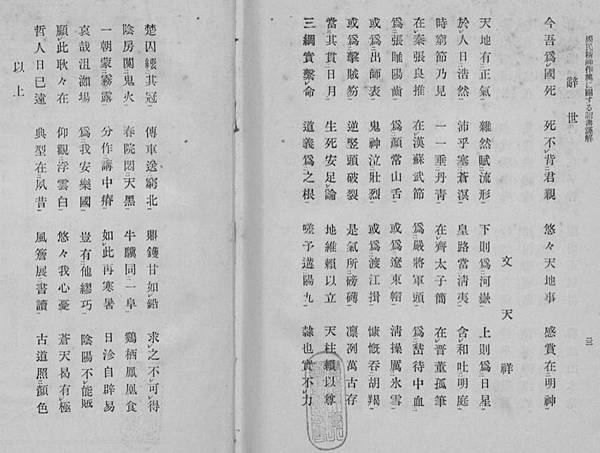 國民精神作興に關する詔書謹解
三
辭世
今吾爲國死 死不背君親 悠々天地事 感賞在明神
文天祥
天地有正氣 雜然賦流形 下則爲河嶽 上則爲日星
於人曰浩然 沛乎塞蒼溟 皇路當淸夷 含和吐明庭
時窮節乃見 一一垂丹靑 在齊太子簡 在晋董孤筆
在秦張良推 在漢蘇武節 爲嚴將軍頭 爲嵆待中血
爲張睢陽齒 爲顏常山舌 或爲遼東帽 淸操厲氷雪
或爲出師表 鬼神泣壯烈 或爲渡江揖 慷慨吞胡羯
或爲擊賊笏 逆竪頭破裂 是氣所磅礴 凛冽萬古存
當其貫日月 生死安足論 地維賴以立 天柱賴以尊
三綱實繫命 道義爲之根 嗟予遘陽九 隷也實不力
楚囚纓其冠 傳車送窮北 鼎鑊甘如鉛 求之不可得
陰房闃鬼火 春院閟天黑 牛驥同一皁 鷄栖鳳凰食
一朝蒙霧露 分作溝中瘠 如此再寒暑 日沴自辟易
哀哉沮洳場 爲我安樂國 豈有他繆巧 陰陽不能賊
顧此耿々在 仰觀浮雲白 悠々我心憂 蒼天曷有極
哲人日已遠 典型在夙昔 風簷展書讀 古道照顏色
以上